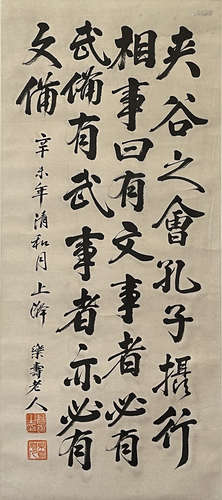 夾谷之會孔子攝行
相事曰有文事者必有
武備有武事者亦必有
文備
辛未年清和月上澣
樂壽老人